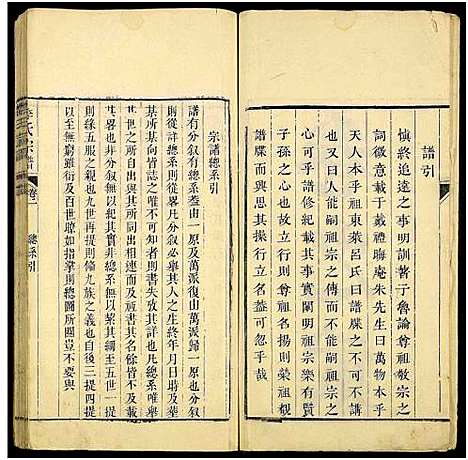 譜引
慎終追遠之事明訓著于魯論尊祖敬宗之
詞徽意載于戴禮晦庵朱先生曰萬物本乎
天人本乎祖東萊呂氏曰譜牒之不可不明
也又曰天子之人能嗣祖宗之傳而不忘嗣祖宗之
心可乎譜修紀載事實闡明祖宗樂有賢
子孫也立行則尊祖名揚則榮祖觀
譜牒而興思其操行立名蓋可忽乎哉
宗譜總系引
譜有分叙有總系蓋由一原及萬派復由萬派歸一原也分叙
則從詳總系則從畧凡分叙必舉其人之生終年月日時及葬
某所某向皆誌之唯不可知者則書失攷其詳也凡總系唯舉
其世之所自出與其所同出相連而及祖書其名傍書其字亦
其畧也非分叙無以紀其實非總系無以絜其綱至五世一提
則緣五服之親也九世再提則倣九族之義也自後三提四提
以至無窮雖衍及百世瞭如指掌則總圖所圖豈不要與
李氏宗譜
卷一
總系引